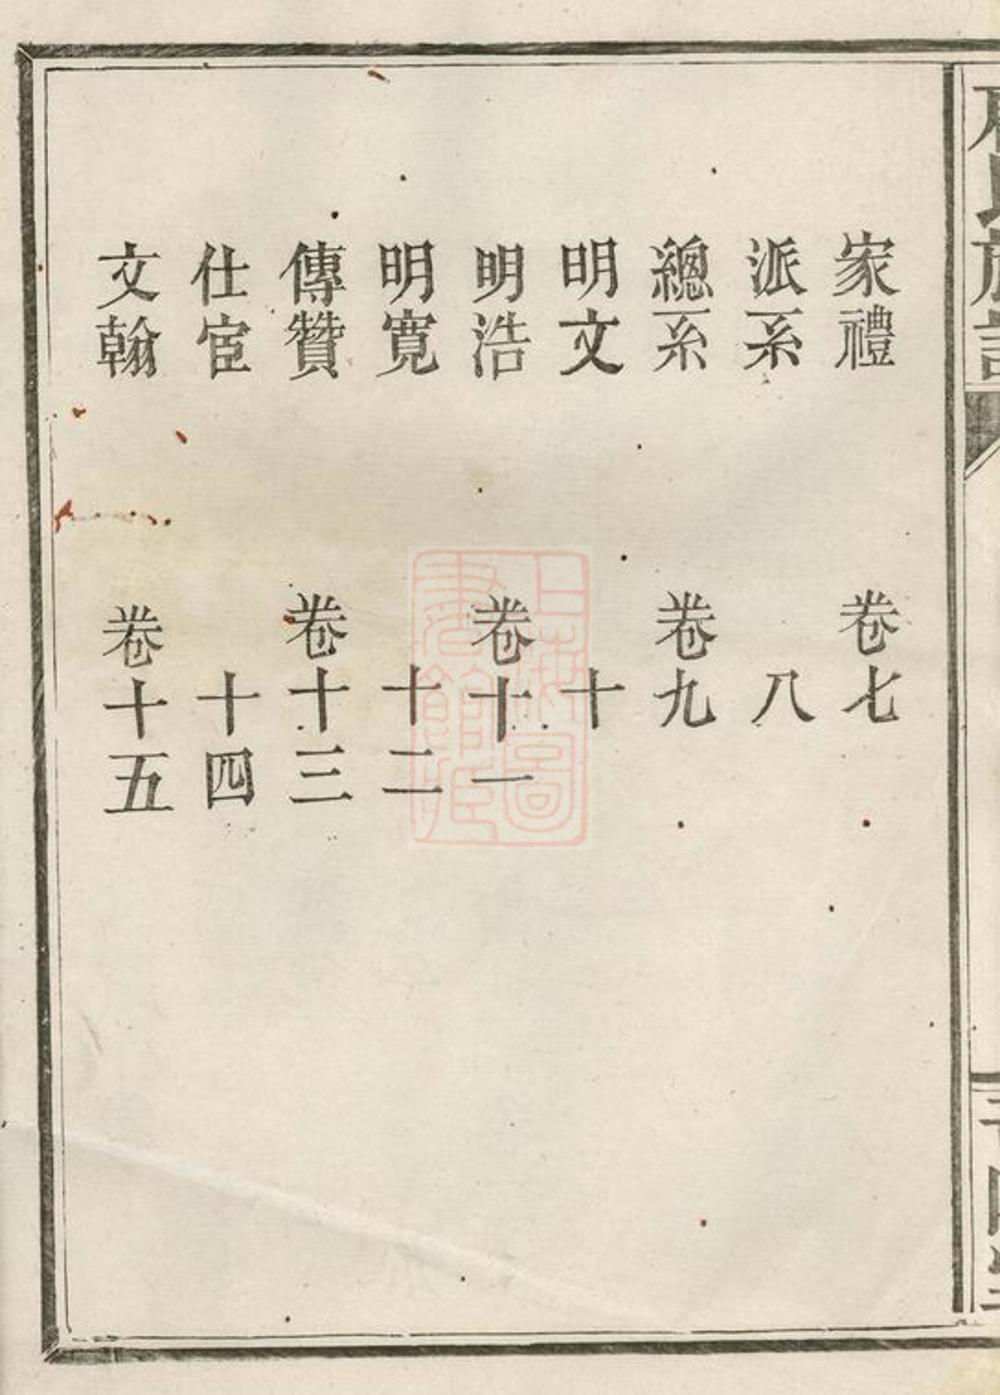 家禮 卷七
派系 八
總系 卷九
明文 十
明浩 卷十一
明寬 十二
傳贊 卷十三
仕宦 十四
文翰 卷十五
上海圖書館藏